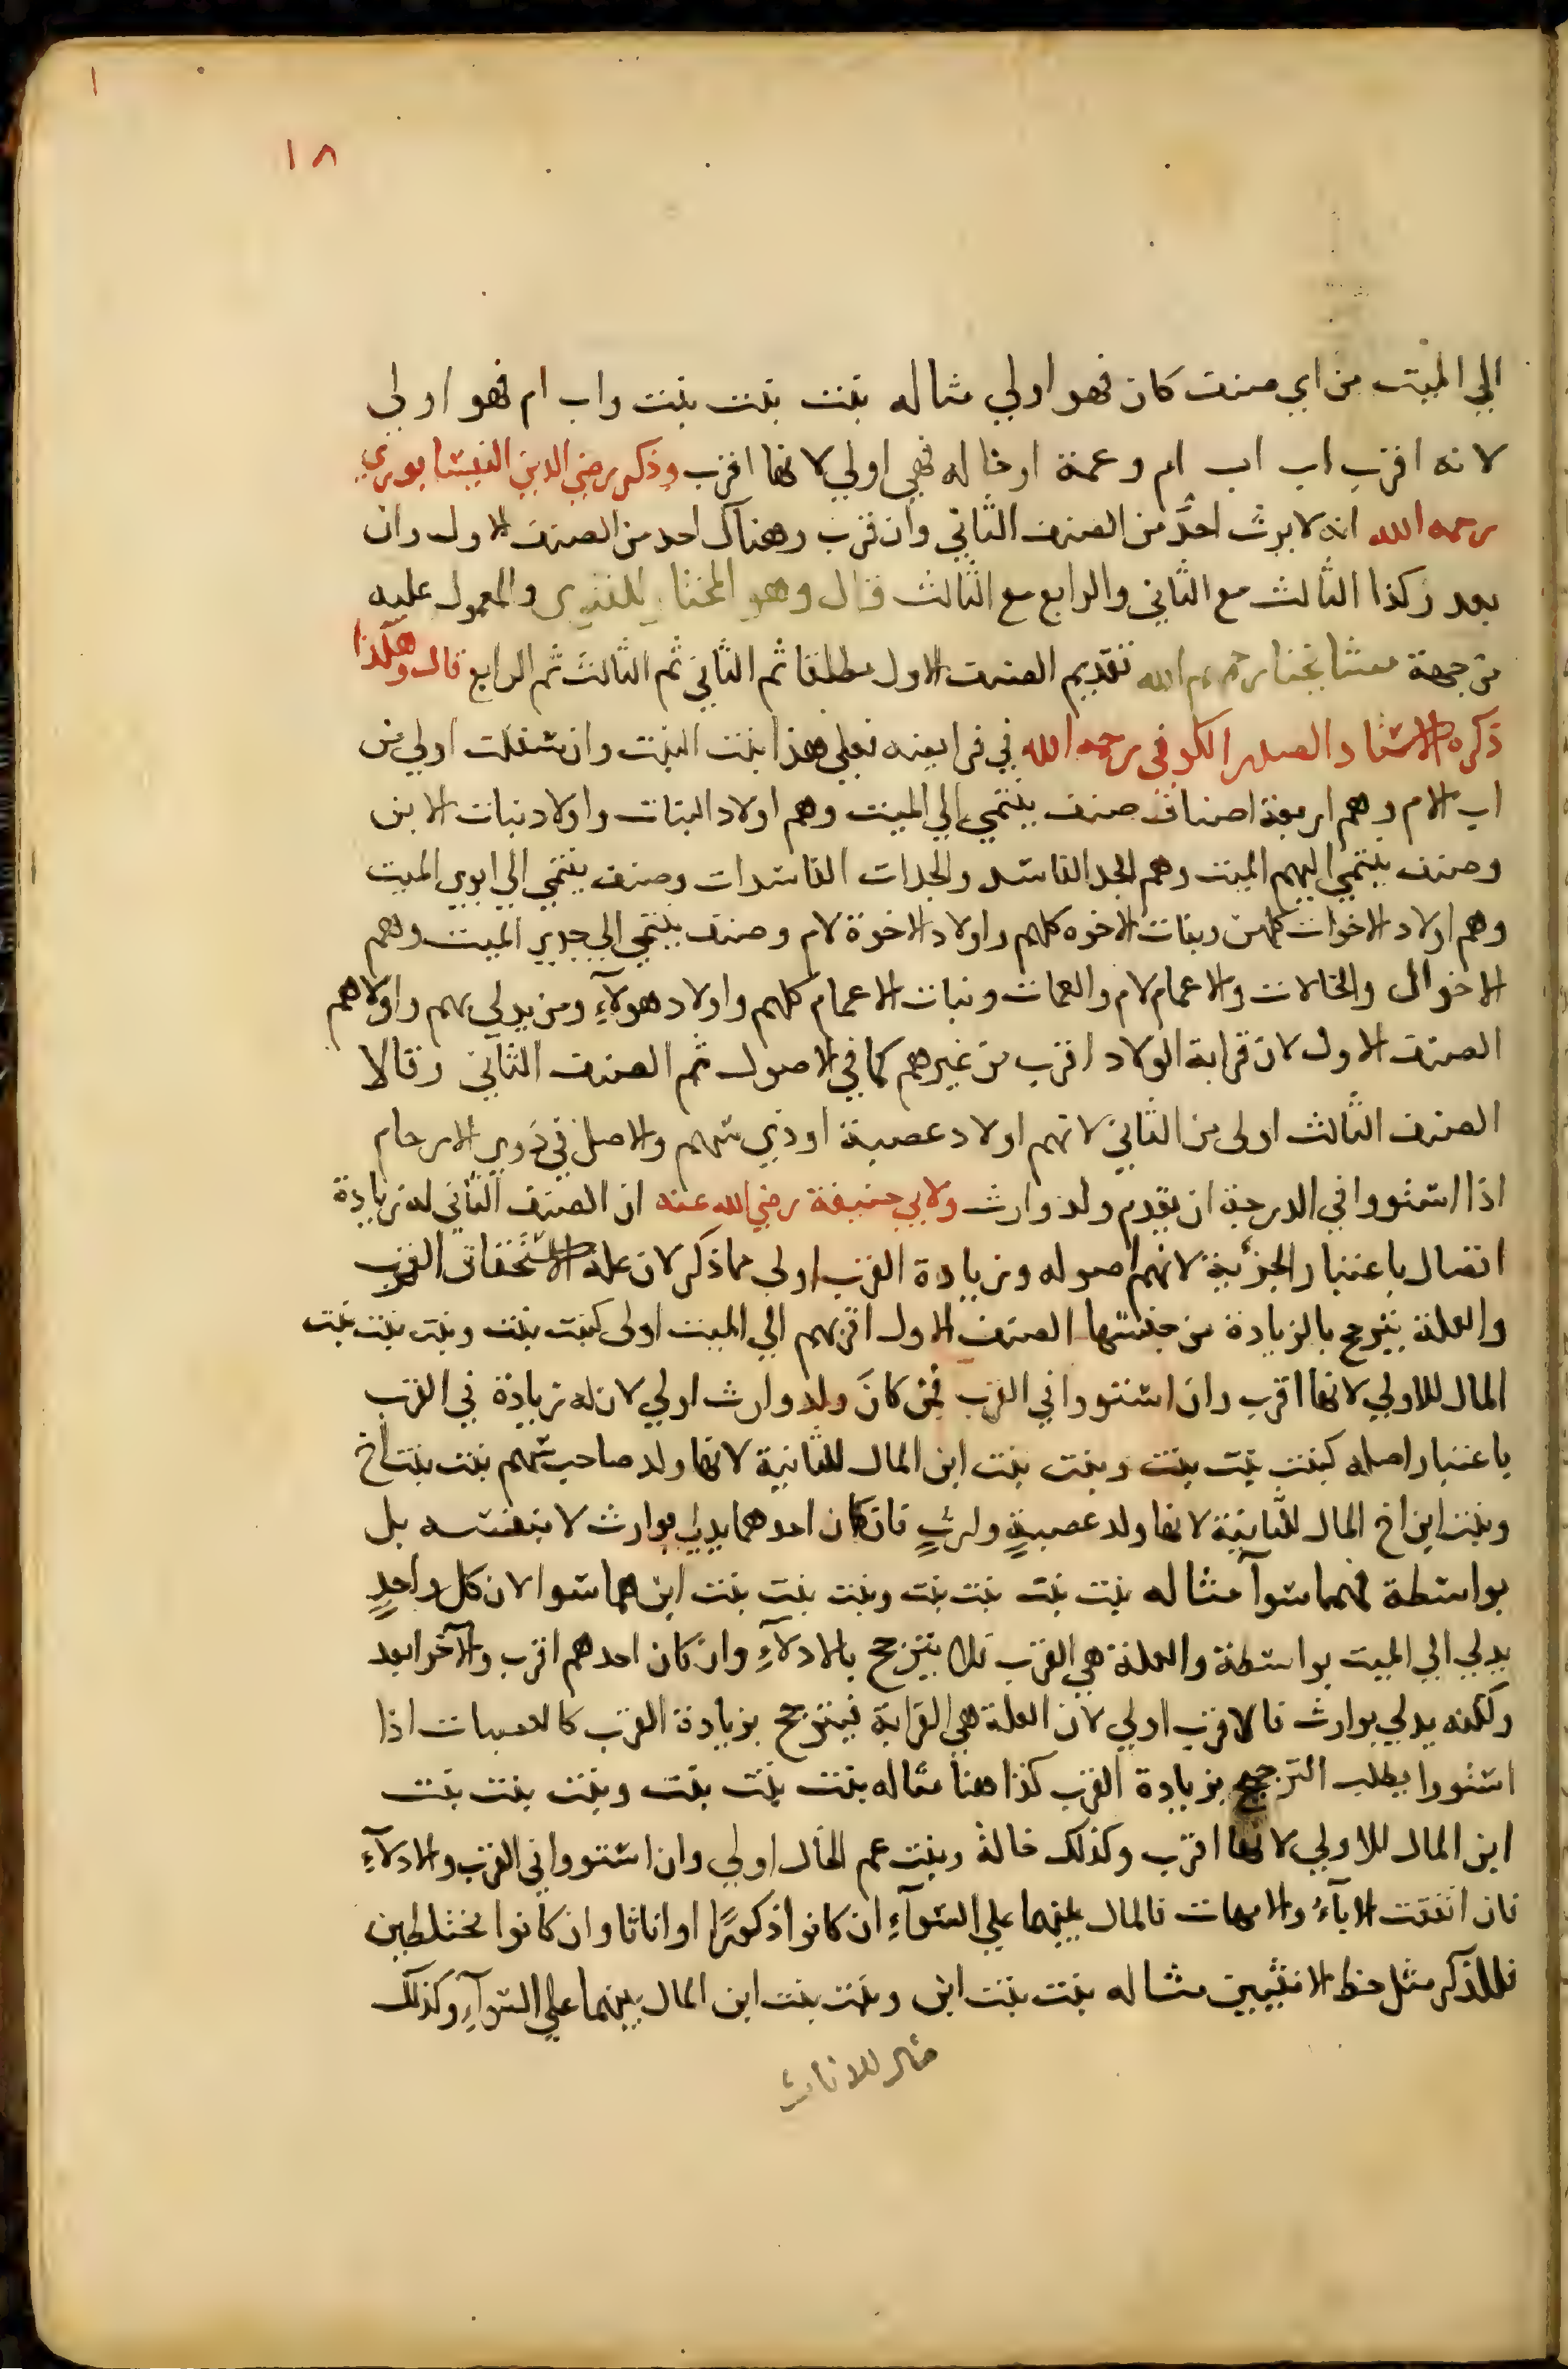 ١٨
الي الميت من اي صنف كان فهو اولي مثاله بنت بنت بنت واب ام فهو اولي
لانه اقرب اب اب ام وعمة اوخاله فهي اولي لانها اقرب وذكر رضي الدين النيسابوري
رحمه الله انه لا يرث احدٌ من الصنف الثاني وان قرب وهناك احد من الصنف الاول وان
بعد وكذا الثالث مع الثاني والرابع مع الثالث قال وهو المختار للفتوى والمعمول عليه
من جهة مشايخنا رحمهم الله تقديم الصنف الاول مطلقا ثم الثاني ثم الثالث ثم الرابع قال وهكذا
ذكره الاستاد الصدر الكوفي رحمه الله في فرايضه فعلي هذا بنت البنت وان سفلت اولي من
اب الام وهم اربعة اصناف صنف ينتمي الي الميت وهم اولاد البنات واولاد بنات الابن
وصنف ينتمي اليهم الميت وهم الجد الفاسد والجدات الفاسدات وصنف ينتمي الي ابوي الميت
وهم اولاد الاخوات كلهن وبنات الاخوه كلهم واولاد الاخوة لام وصنف ينتمي الي جدي الميت وهم
الاخوال والخالات والاعمام لام والعمات وبنات الاعمام كلهم واولاد هولآءِ ومن يدلي بهم واولاهم
الصنف الاول لان قرابة الولاد اقرب من غيرهم كما في الاصول ثم الصنف الثاني وقالا
الصنف الثالث اولى من الثاني لانهم اولاد عصبة او ذي سهم والاصل في ذوي الارحام
اذا استووا في الدرجة ان يقدم ولد وارث ولابي حنيفة رضي الله عنه ان الصنف الثاني له زيادة
اتصال باعتبار الجزئية لانهم اصوله وزيادة القرب اولى مما ذكر لان علة الاستحقاق القرب
والعلة يترجح بالزيادة من جنسها الصنف الاول اقربهم الي الميت اولى كبنت بنت وبنت بنت بنت
المال للاولي لانها اقرب وان استووا في القرب فمن كانَ ولد وارث اولي لان له زيادة في القرب
باعتبار اصله كبنت بنت بنت وبنت بنت ابن المال للثانية لانها ولد صاحب سهم بنت بنت اخ
وبنت ابن اخ المال للثانية لانها ولد عصبةٍ وارثٍ فان كان احدهما يدلي بوارث لا بنفسه بل
بواسطة فهما سوآ مثاله بنت بنت بنت بنت وبنت بنت بنت ابن هما سوا لان كل واحدٍ
يدلي الي الميت بواسطة والعلة هي القرب فلا يترجح بالادلآءِ وان كان احدهم اقرب والآخر ابعد
ولكنه يدلي بوارث فالاقرب اولي لان العلة هي القرابة فيترجح بزيادة القرب كالعصبات اذا
استووا يطلب الترجيح بزيادة القرب كذا هنا مثاله بنت بنت بنت وبنت بنت بنت
ابن المال للاولي لانها اقرب وكذلك خالة وبنت عم الخال اولي وان استووا في القرب والادلآءِ
فان اتفقت الابآءُ والامهات فالمال بينهما علي السوآءِ ان كانوا ذكورًا او اناثا وان كانوا مختلطين
فللذكر مثل حظ الانثيين مثاله بنت بنت ابن وبنت بنت ابن المال بينهما علي السوآءِ وكذلك
مثال للاناث